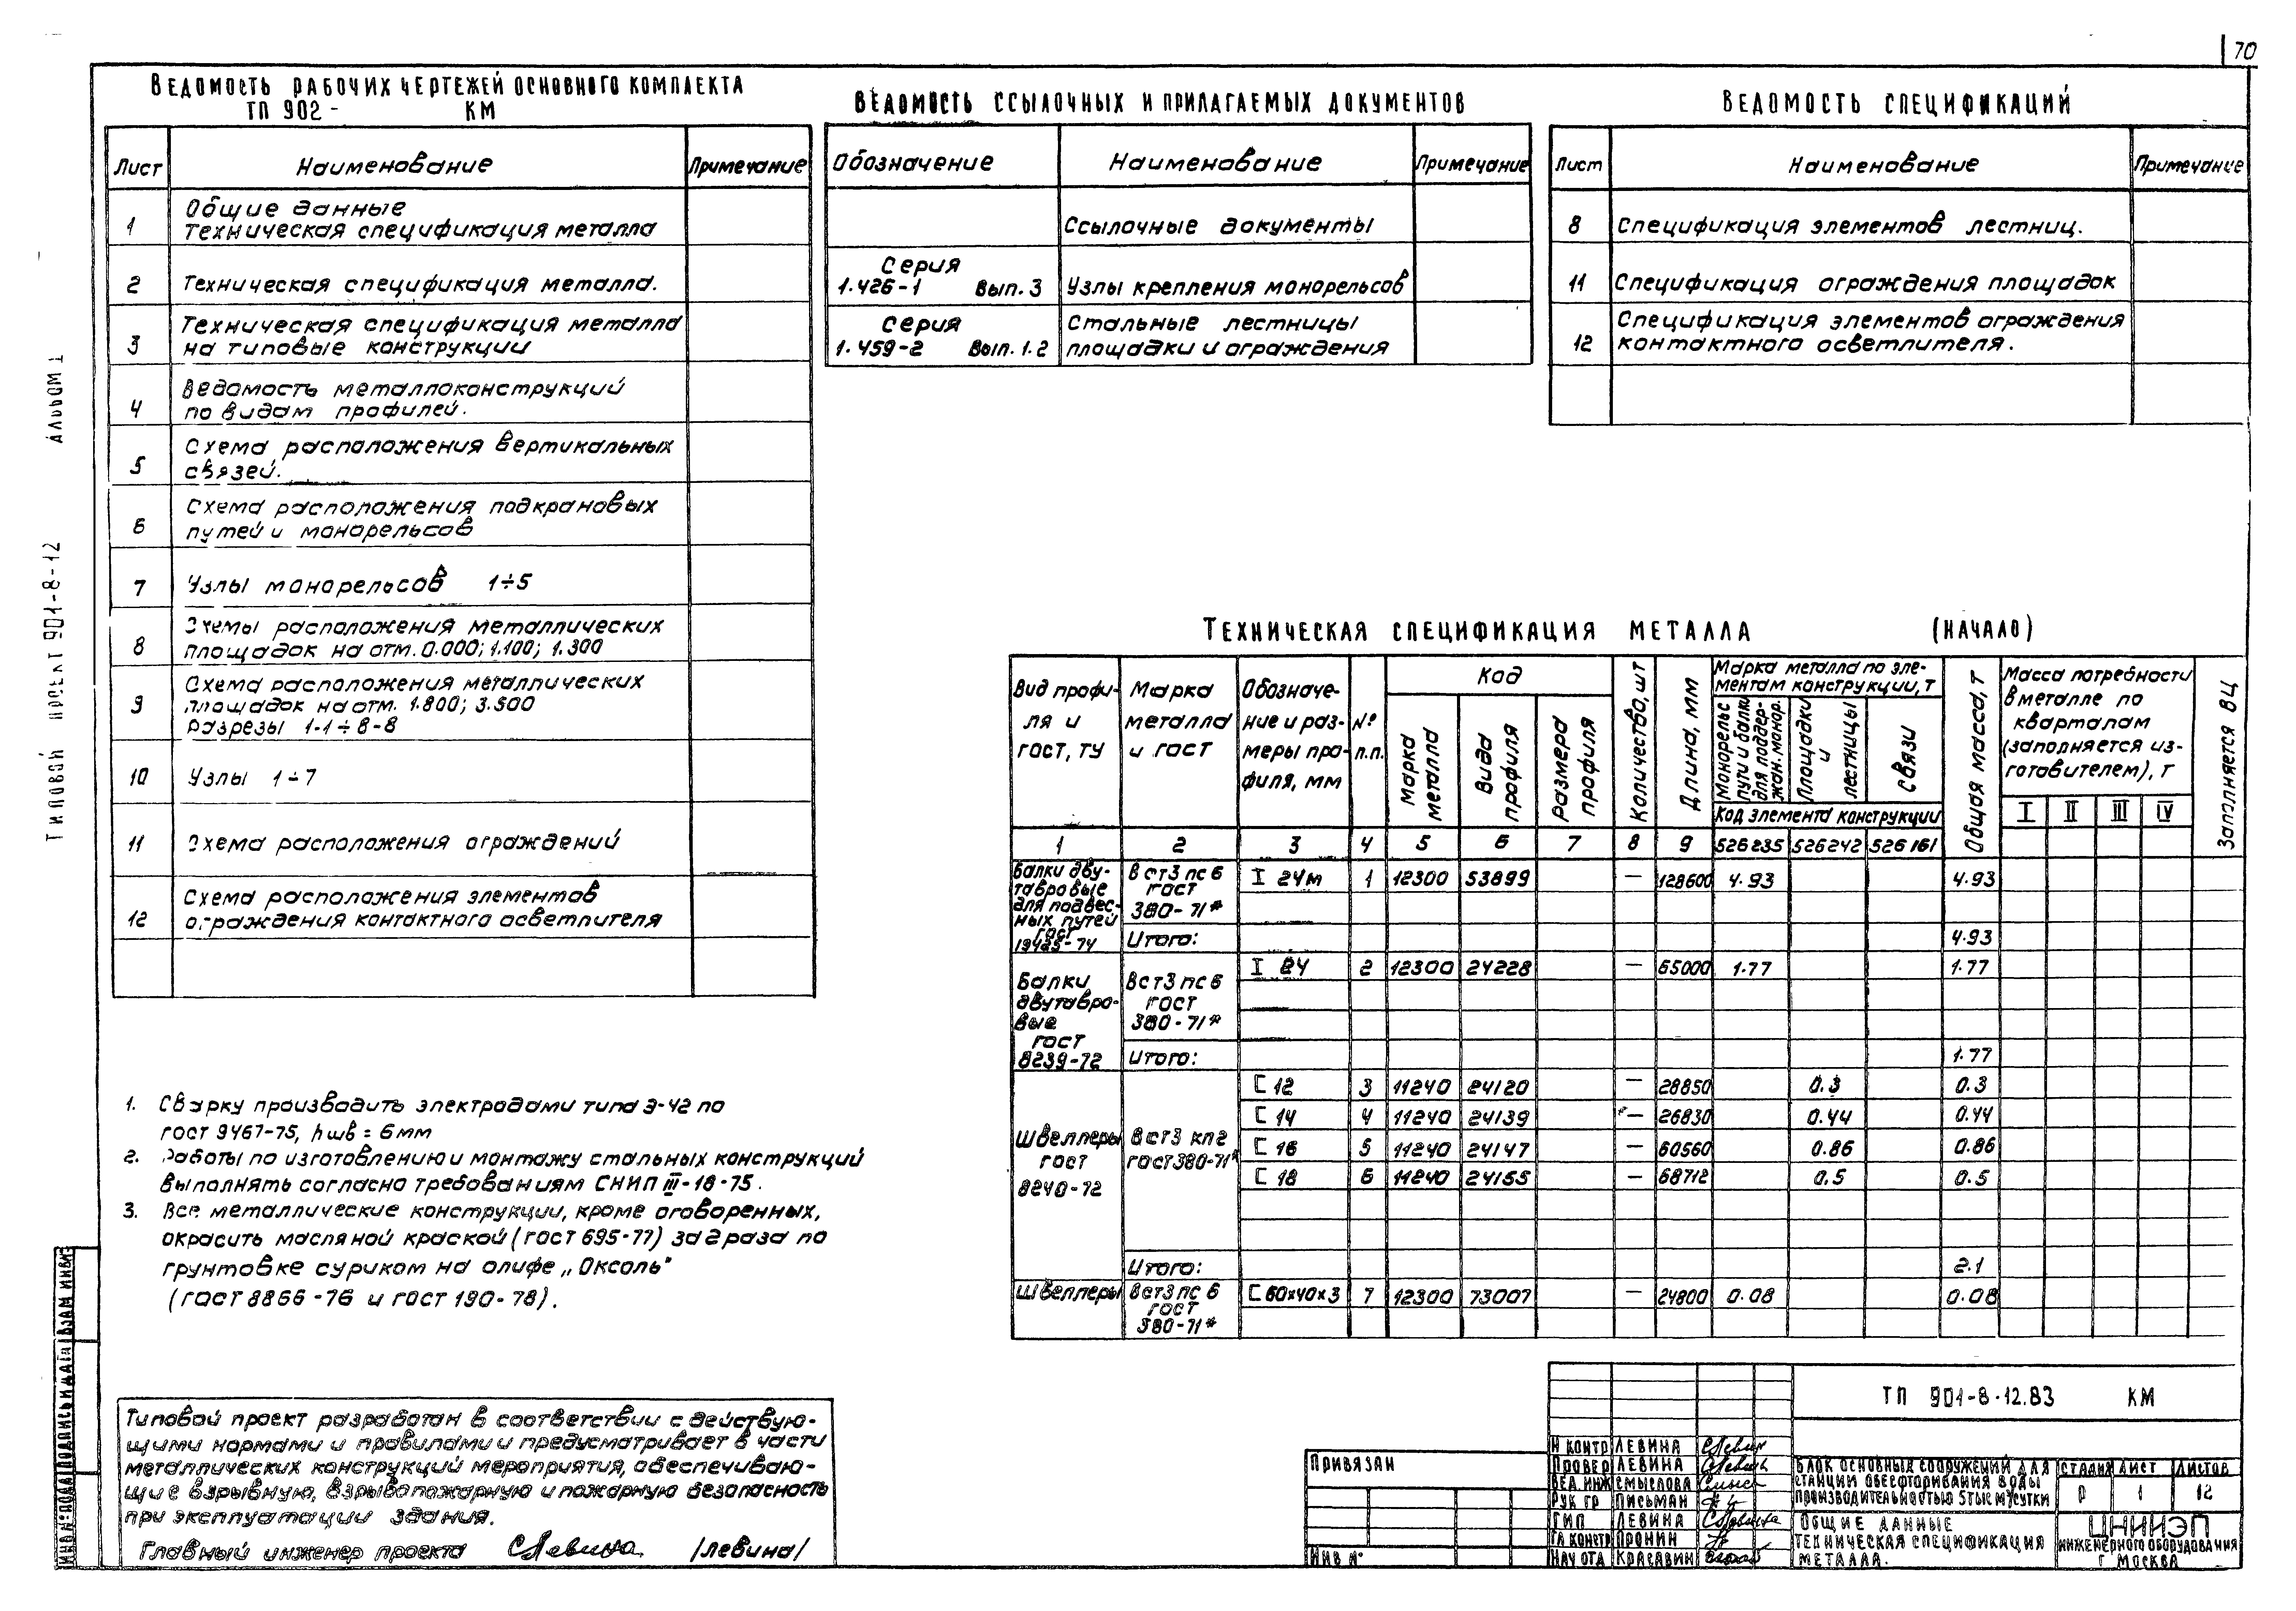 70
Ведомость рабочих чертежей основного комплекта
ТП 902-          КМ
Лист Наименование Примечание
1 Общие данные
Техническая спецификация металла
2 Техническая спецификация металла.
3 Техническая спецификация металла
на типовые конструкции
4 Ведомость металлоконструкций
по видам профилей.
5 Схема расположения вертикальных
связей.
6 Схема расположения подкрановых
путей и монорельсов
7 Узлы монорельсов 1÷5
8 Схемы расположения металлических
площадок на отм. 0.000; 1.100; 1.300
9 Схема расположения металлических
площадок на отм. 1.800; 3.500
Разрезы 1-1÷8-8
10 Узлы 1÷7
11 Схема расположения ограждений
12 Схема расположения элементов
ограждения контактного осветлителя
Ведомость ссылочных и прилагаемых документов
Обозначение Наименование Примечание
Ссылочные документы
Серия
1.426-1 Вып. 3 Узлы крепления монорельсов
Серия Стальные лестницы
1.459-2 Вып. 1.2 площадки и ограждения
Ведомость спецификаций
Лист Наименование Примечание
8 Спецификация элементов лестниц.
11 Спецификация ограждения площадок
12 Спецификация элементов ограждения
контактного осветлителя.
Альбом 1
Типовой проект 901-8-12
Техническая спецификация металла (начало)
Вид профи-
ля и
гост, ту
Марка
металла
и гост
Обозначе-
ние и раз-
меры про-
филя, мм
№
п.п.
Код
Марка
металла
Вида
профиля
Размера
профиля
Количество, шт
Длина, мм
Марка металла по эле-
ментам конструкции, т
Монорельс
пути и балки
для поддер-
жан. монор.
Площадки
и
лестницы
Связи
Код элемента конструкции
Общая масса, т
Масса потребности
в металле по
кварталам
(заполняется из-
готовителем), т
I II III IV
Заполняется ВЦ
1 2 3 4 5 6 7 8 9 526235 526242 526161
Балки дву-
тавровые
для подвес-
ных путей
гост
19425-74
Вст3 пс 6
гост
380-71*
I 24м 1 12300 53899 — 128600 4.93 4.93
Итого: 4.93
Балки
двутавро-
вые
гост
8239-72
Вст3 пс 6
гост
380-71*
I 24 2 12300 24228 — 65000 1.77 1.77
Итого: 1.77
Швеллеры
гост
8240-72
Вст3 кп2
гост 380-71*
[ 12 3 11240 24120 — 28850 0.3 0.3
[ 14 4 11240 24139 — 26830 0.44 0.44
[ 16 5 11240 24147 — 60560 0.86 0.86
[ 18 6 11240 24155 — 68712 0.5 0.5
Итого: 2.1
Швеллеры Вст3 пс 6
гост
380-71*
[ 60×40×3 7 12300 73007 — 24800 0.08 0.08
1. Сварку производить электродами типа Э-42 по
гост 9467-75, hшв = 6мм
2. Работы по изготовлению и монтажу стальных конструкций
выполнять согласно требованиям СНИП III-18-75.
3. Все металлические конструкции, кроме оговоренных,
окрасить масляной краской (гост 695-77) за 2 раза по
грунтовке суриком на олифе „Оксоль"
(гост 8866-76 и гост 190-78).
Типовой проект разработан в соответствии с действую-
щими нормами и правилами и предусматривает в части
металлических конструкций мероприятия, обеспечиваю-
щие взрывную, взрывопожарную и пожарную безопасность
при эксплуатации здания.
Главный инженер проекта /Левина/
Инв № подл Подпись и дата Взам инв №
Привязан
Инв №
ТП 901-8-12.83 КМ
Н контр Левина
Провер Левина
Вед. инж Смыслова
Рук гр Письман
ГИП Левина
Гл констр Пронин
Нач отд Красавин
Блок основных сооружений для
станции обесфторивания воды
производительностью 5 тыс м³/сутки
Стадия Лист Листов
Р 1 12
Общие данные
Техническая спецификация
металла.
ЦНИИЭП
инженерного оборудования
г Москва